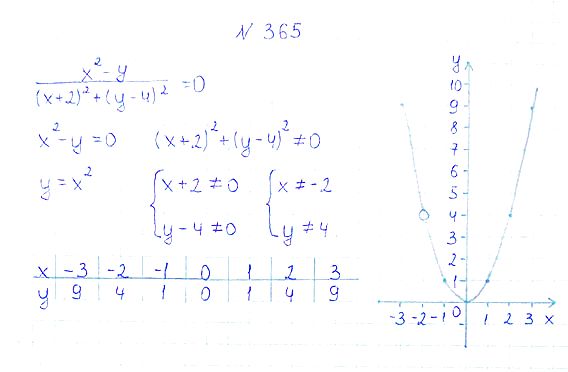 N 365
x² - y / (x+2)² + (y-4)² = 0
x² - y = 0 (x+2)² + (y-4)² ≠ 0
y = x² { x+2 ≠ 0 { x ≠ -2
y-4 ≠ 0 y ≠ 4
x -3 -2 -1 0 1 2 3
y 9 4 1 0 1 4 9
y
10
9
8
7
6
5
4
3
2
1
-3 -2 -1 0 1 2 3 x